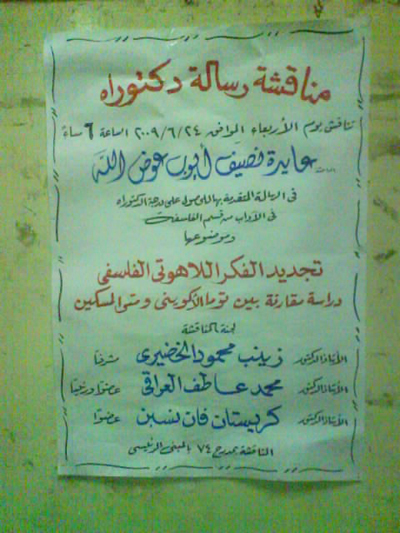 مناقشة رسالة دكتوراه
تناقش يوم الأربعاء الموافق ٢٠٠٩/٦/٢٤ الساعة ٦ مساءً
عايدة نصيف أيوب عوض الله
فى الرسالة المتقدمة بها للوصول على درجة الدكتوراه
فى الآداب من قسم الفلسفة
وموضوعها
تجديد الفكر اللاهوتى الفلسفي
دراسة مقارنة بين توما الأكوينى ومتى المسكين
لجنة المناقشة
الأستاذ الدكتور زينب محمود الخضيرى مشرفاً
الأستاذ الدكتور محمد عاطف العراقى عضواً ورئيساً
الأستاذ الدكتور كريستان فان نسبن عضواً
المناقشة بمدرج ٧٤ بالمبنى الرئيسى